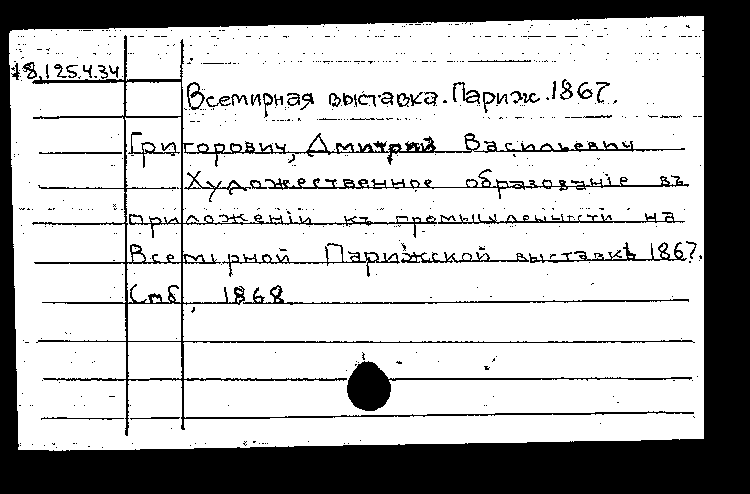 18.125.4.34
Всемирная выставка. Париж. 1867.
Григорович, Дмитрий Васильевич
Художественное образованіе въ
приложеніи къ промышленности на
Всемірной Парижской выставкѣ 1867.
Спб, 1868